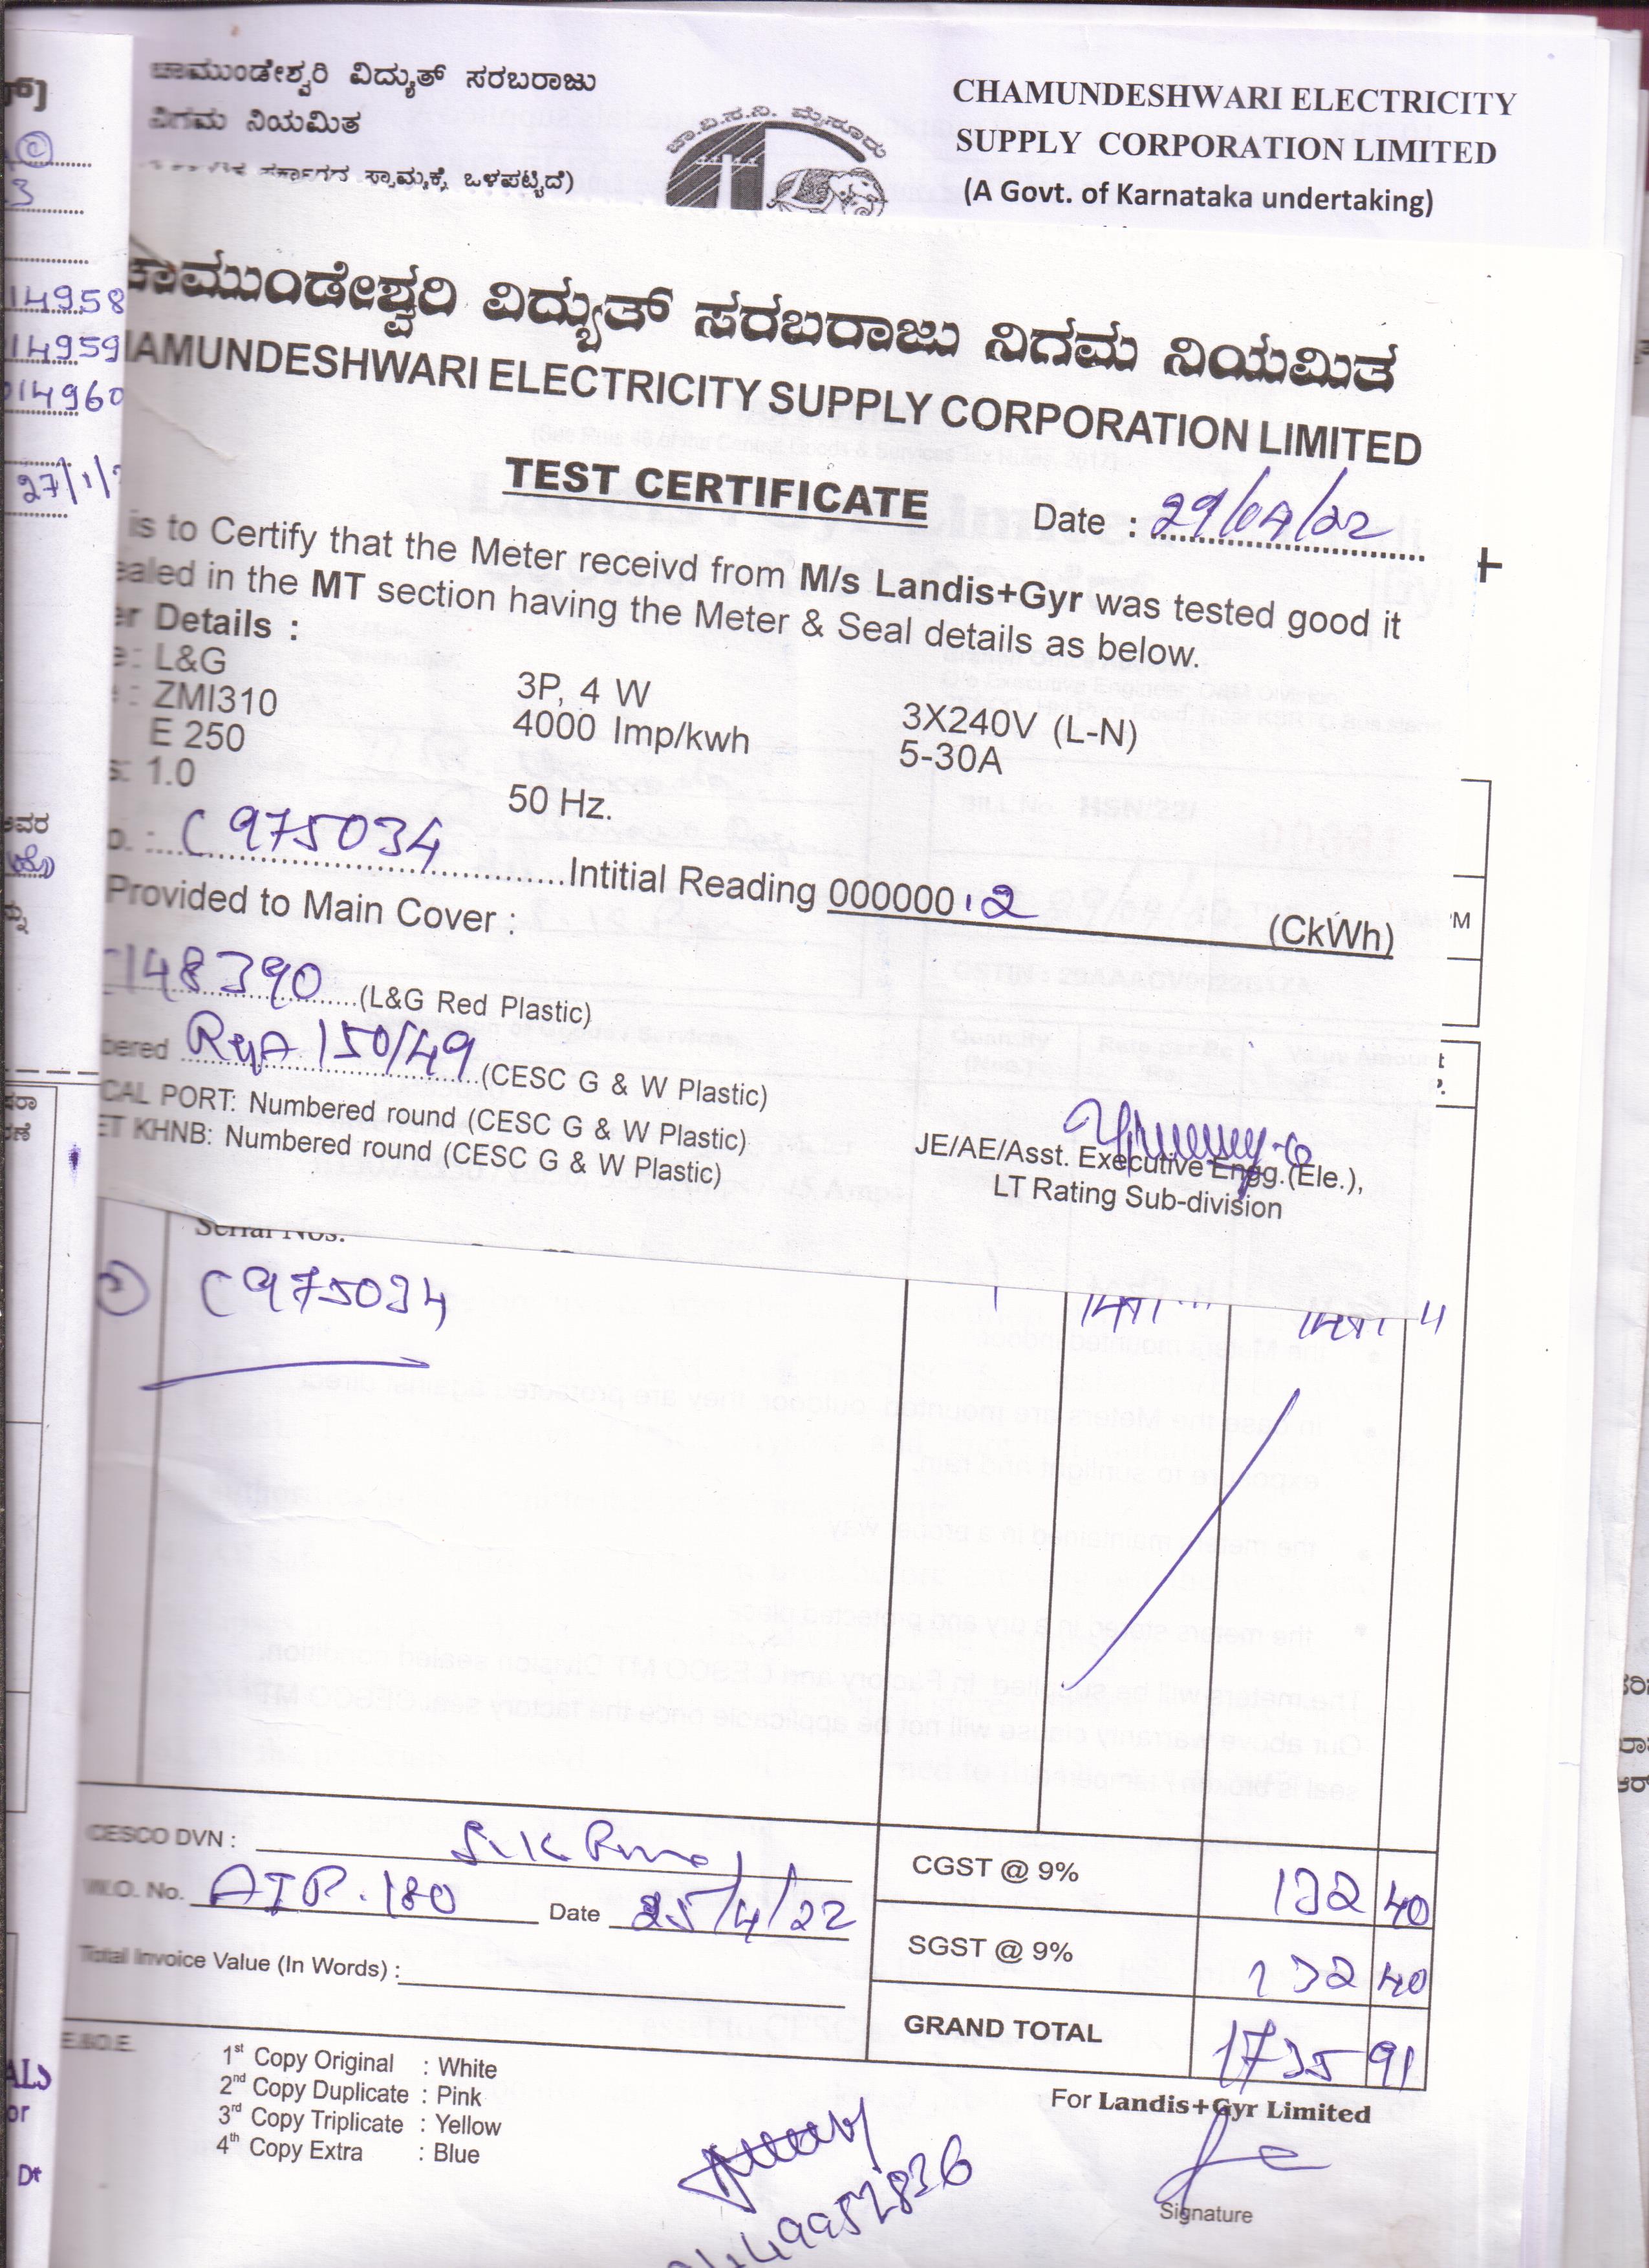 ಚಾಮುಂಡೇಶ್ವರಿ ವಿದ್ಯುತ್ ಸರಬರಾಜು
ನಿಗಮ ನಿಯಮಿತ
ಸರ್ಕಾರದ ಸ್ವಾಮ್ಯಕ್ಕೆ ಒಳಪಟ್ಟಿದೆ)
ಚಾ.ವಿ.ಸ.ನಿ. ಮೈಸೂರು
CHAMUNDESHWARI ELECTRICITY
SUPPLY CORPORATION LIMITED
(A Govt. of Karnataka undertaking)
14958
14959
014960
27/1/
ಚಾಮುಂಡೇಶ್ವರಿ ವಿದ್ಯುತ್ ಸರಬರಾಜು ನಿಗಮ ನಿಯಮಿತ
HAMUNDESHWARI ELECTRICITY SUPPLY CORPORATION LIMITED
TEST CERTIFICATE
Date : 29/04/22
is to Certify that the Meter receivd from M/s Landis+Gyr was tested good it
ealed in the MT section having the Meter & Seal details as below.
er Details :
e : L&G 3P, 4 W 3X240V (L-N)
e : ZMI310 4000 Imp/kwh 5-30A
E 250
s: 1.0 50 Hz.
o. : C975034 Intitial Reading 000000.2 (CkWh)
Provided to Main Cover :
C148390 (L&G Red Plastic)
bered 150/49 (CESC G & W Plastic)
CAL PORT: Numbered round (CESC G & W Plastic)
ET KHNB: Numbered round (CESC G & W Plastic)
JE/AE/Asst. Executive Engg.(Ele.),
LT Rating Sub-division
Serial Nos.
C975034
CESCO DVN :
W.O. No. ATP.180 Date 25/4/22
Total Invoice Value (In Words) :
CGST @ 9% 132 40
SGST @ 9% 132 40
GRAND TOTAL 1735 91
E.&O.E.
1st Copy Original : White
2nd Copy Duplicate : Pink
3rd Copy Triplicate : Yellow
4th Copy Extra : Blue
For Landis+Gyr Limited
Signature